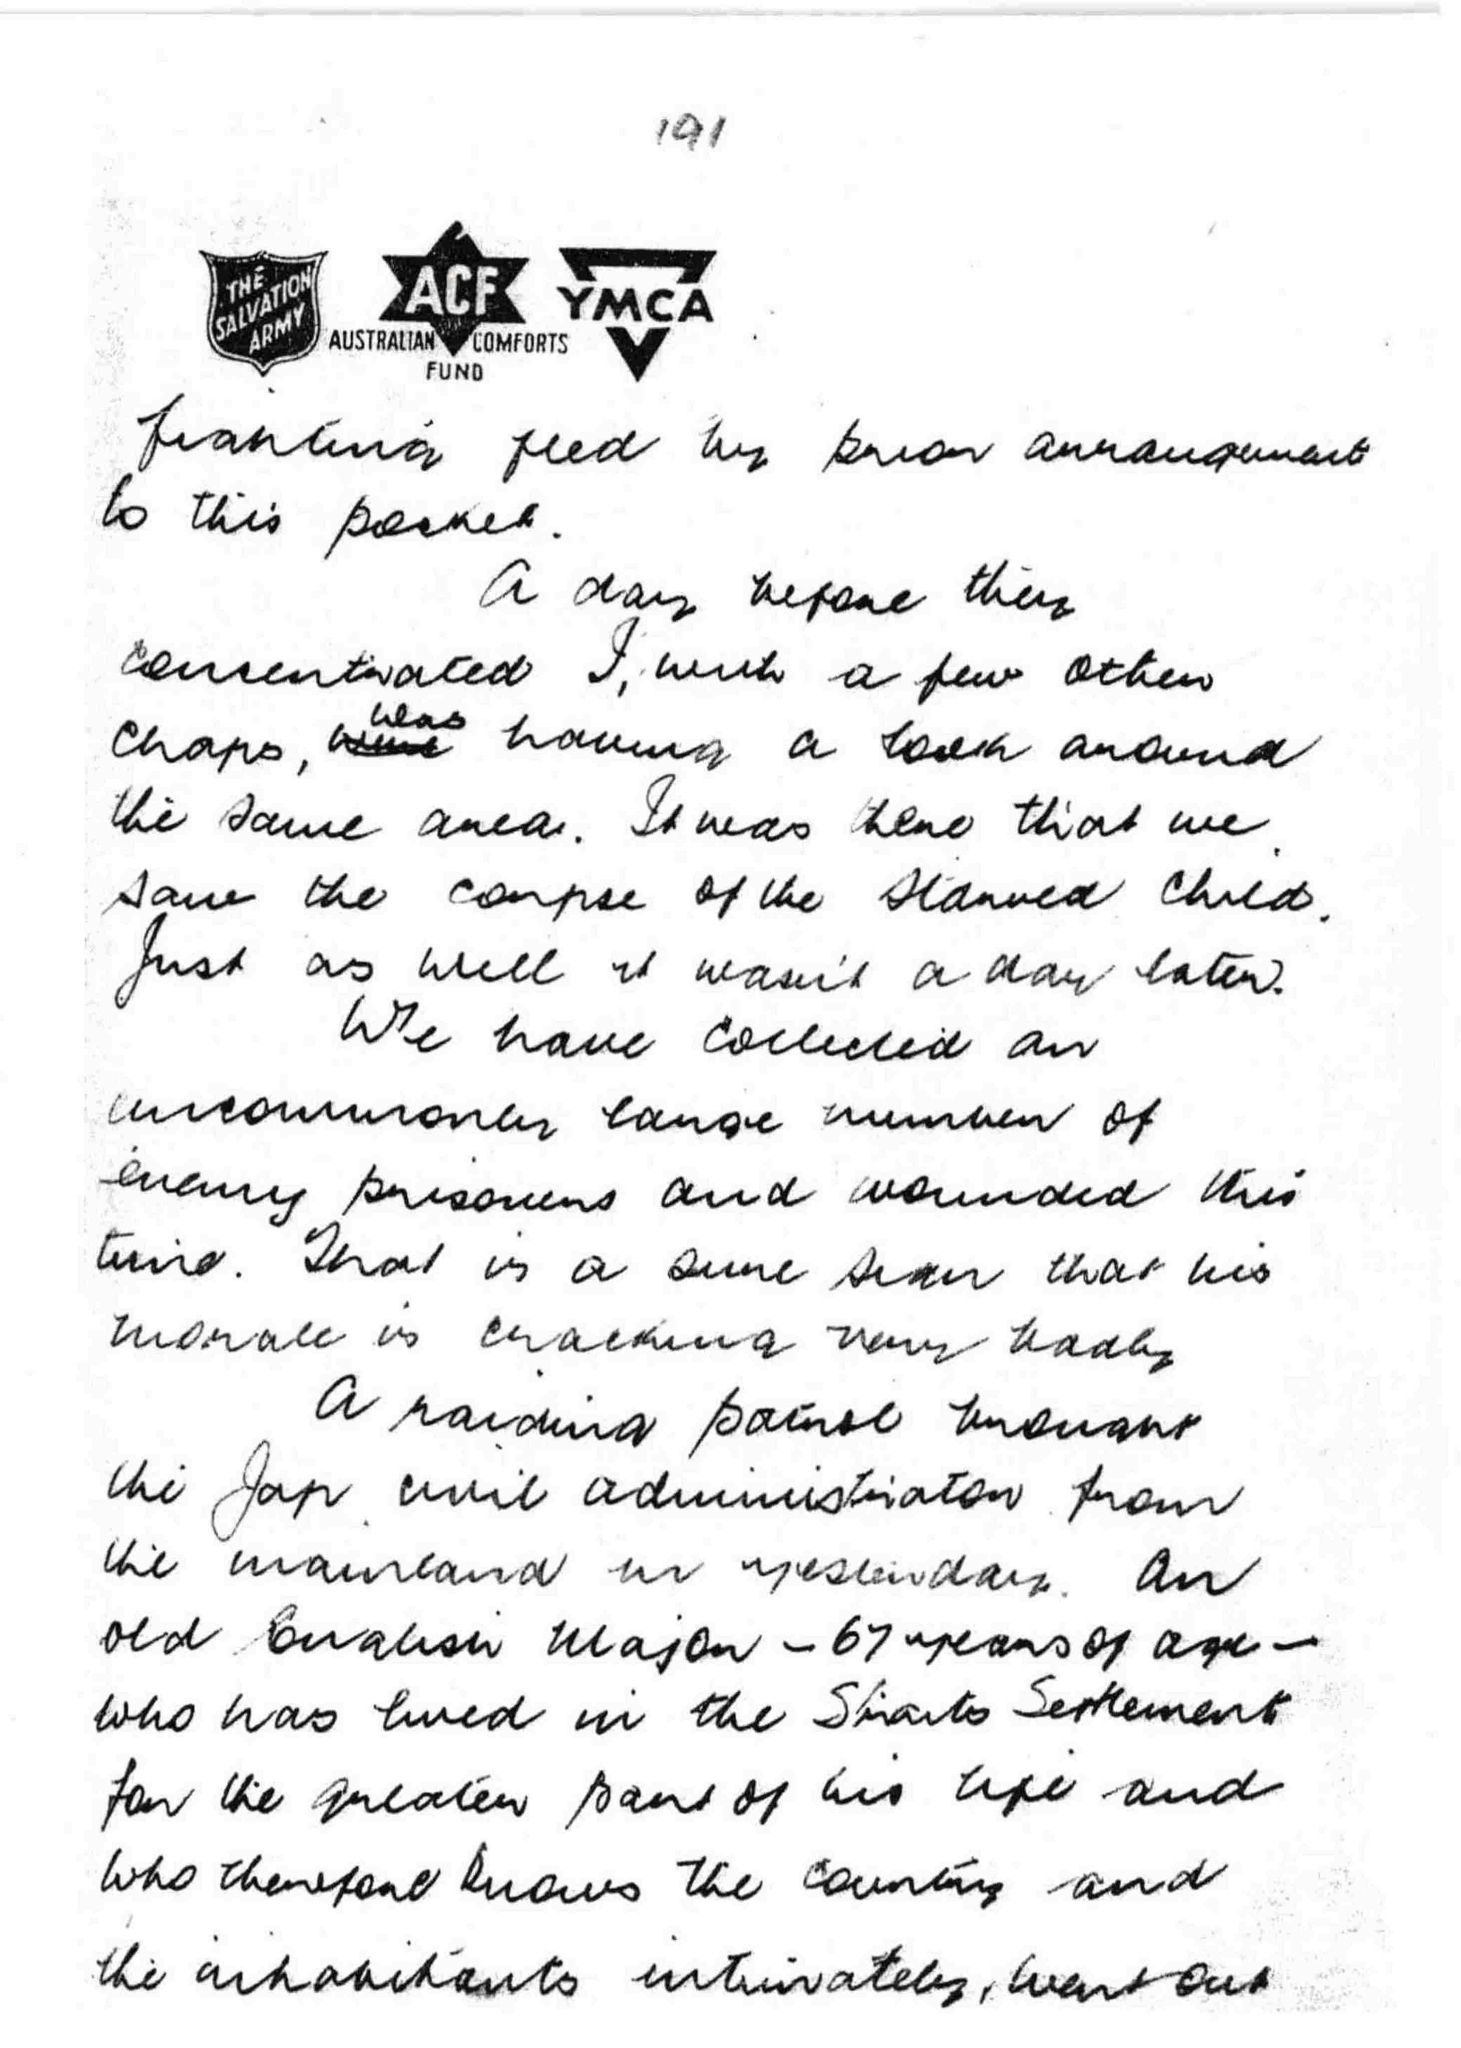 191
THE SALVATION ARMY
ACF
AUSTRALIAN COMFORTS FUND
YMCA
fighting fled by prior arrangement
to this pocket.
A day before they
concentrated I, with a few other
chaps, was having a look around
the same area. It was there that we
saw the corpse of the starved child.
Just as well it wasn't a day later.
We have collected an
uncommonly large number of
enemy prisoners and wounded this
time. That is a sure sign that his
morale is cracking very badly
A raiding patrol brought
the Jap civil administrator from
the mainland in yesterday. An
old English Major - 67 years of age -
who has lived in the Straits Settlement
for the greater part of his life and
who therefore knows the country and
the inhabitants intimately, went out